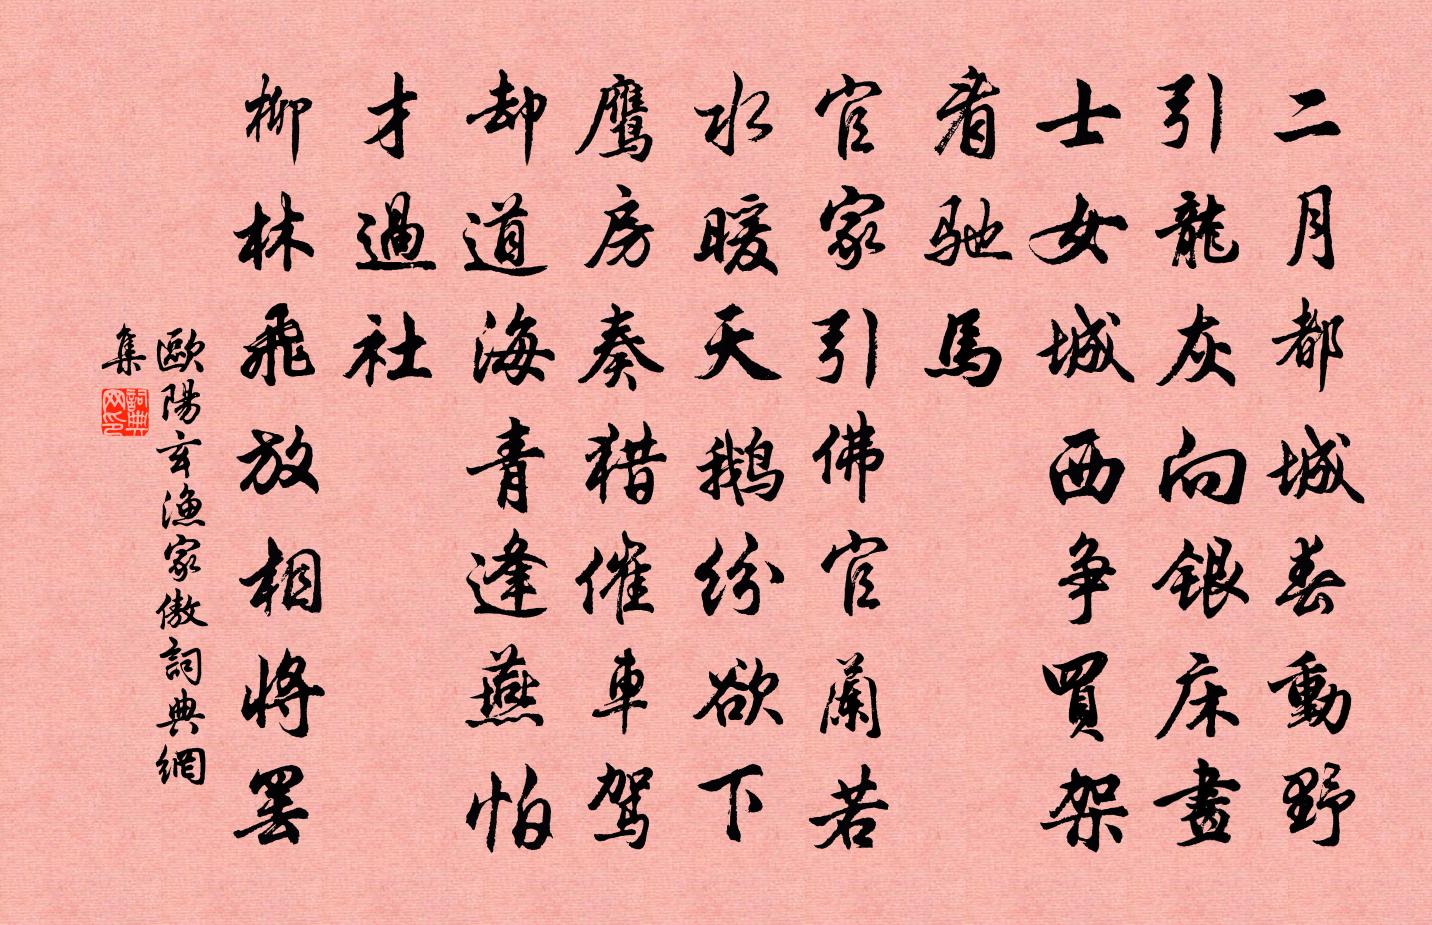 二月都城春動野
引龍灰向銀床畫
士女城西争買架
看馳馬
官家引佛官蘭若
水暖天鵝纷欲下
鷹房奏猎催車駕
却道海青逢燕怕
才過社
柳林飛放相將罢
歐陽玄漁家傲詞典網
集
詞典
网印